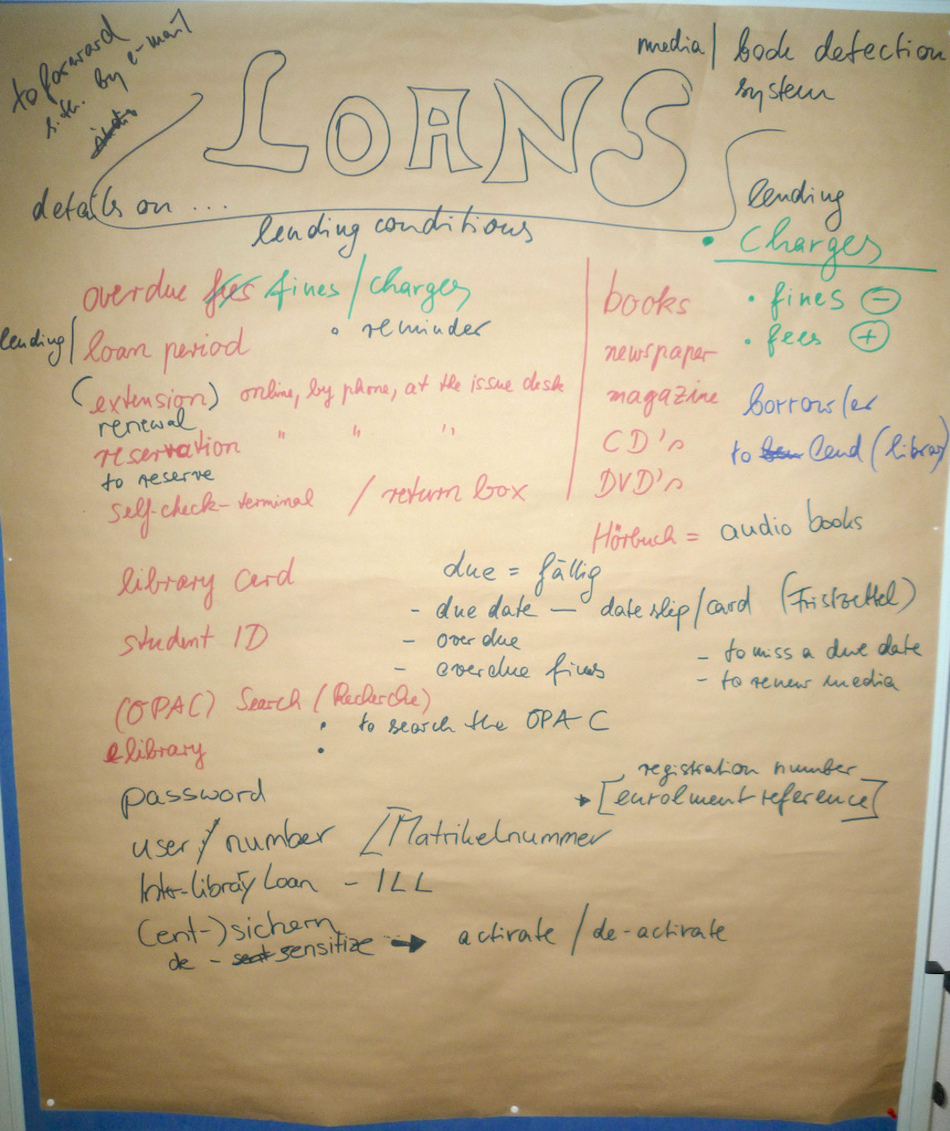 to forward
s.th. by e-mail
media/ book detection
system
LOANS
details on ...
lending conditions
lending
• charges
overdue fees fines/charges
• reminder
books
• fines -
lending/ loan period
newspaper
• fees +
(extension) online, by phone, at the issue desk
renewal
magazine
borrow/er
reservation " " "
to reserve
CD's
to lend (library)
self-check-terminal / return box
DVD's
Hörbuch = audio books
library card
due = fällig
- due date — date slip/card (Fristzettel)
student ID
- overdue
- overdue fines
- to miss a due date
- to renew media
(OPAC) Search (Recherche)
• to search the OPAC
elibrary
•
password
registration number
[enrolment reference]
user/number /Matrikelnummer
Inter-library Loan - ILL
(ent-)sichern
de - sensitize → activate / de-activate